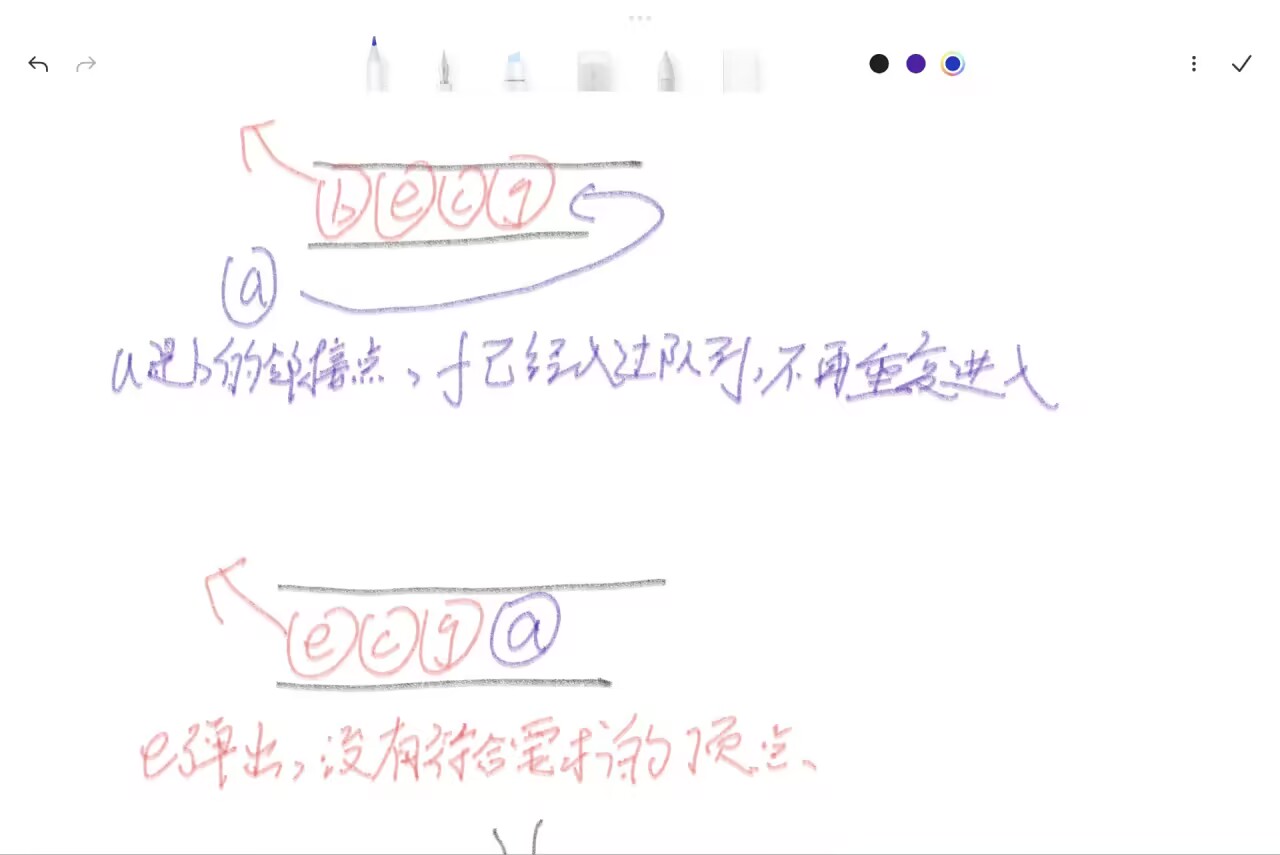 b e c g
a
a是b的邻接点，f已经入过队列，不再重复进入
e c g a
e弹出，没有符合需求的顶点、